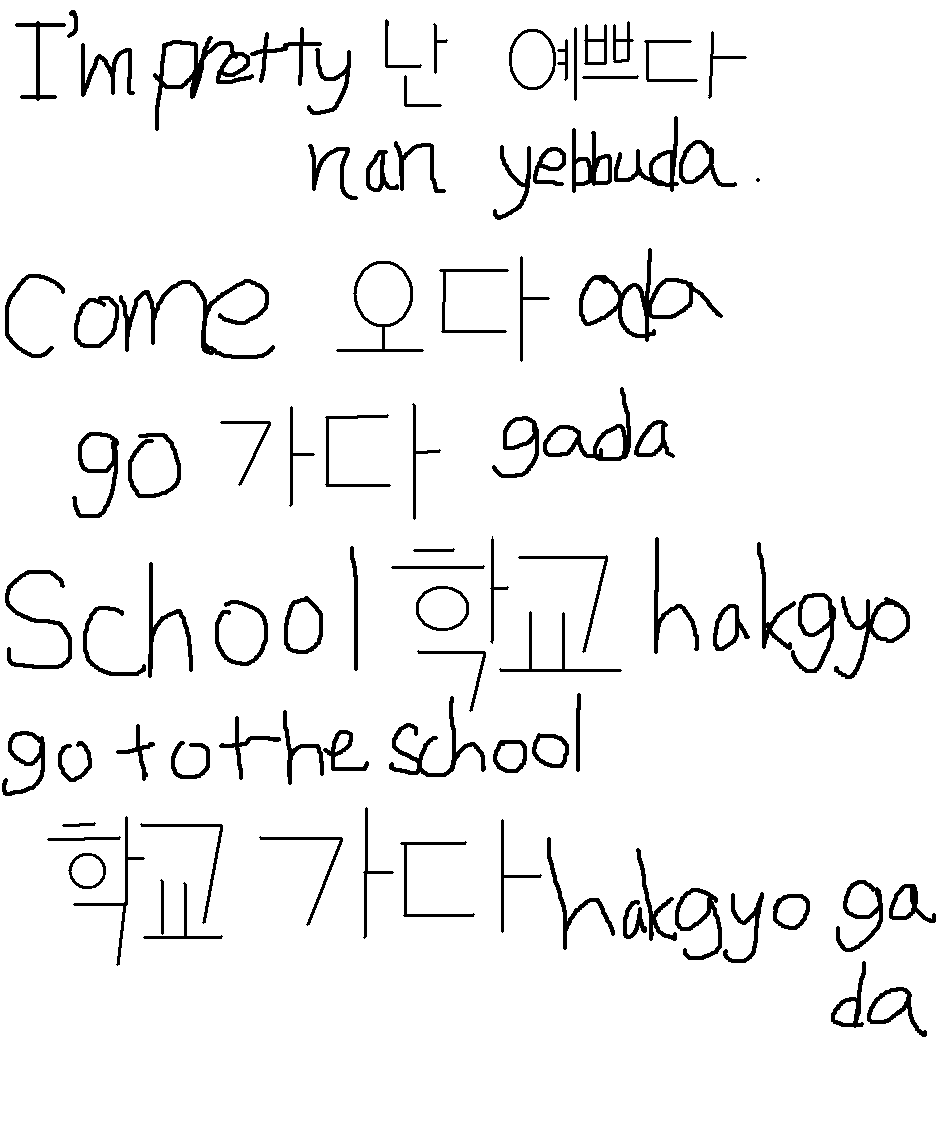 I'm pretty 난 예쁘다
nan yebbuda.
Come 오다 oda
go 가다 gada
School 학교 hakgyo
go to the school
학교 가다 hakgyo ga
da